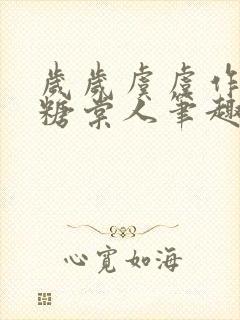 歲歲虞虞作
糖棠人筆趣
心寬如海